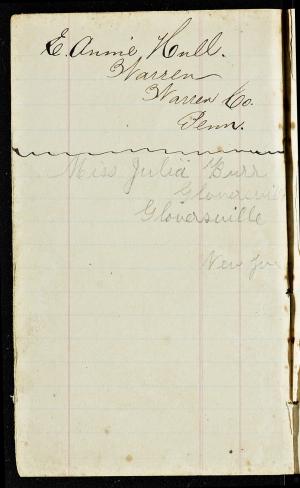 E. Annie Hull.
Warren
Warren Co.
Penn.
Miss Julia Burr
Gloversvil
Gloversville
New Yor